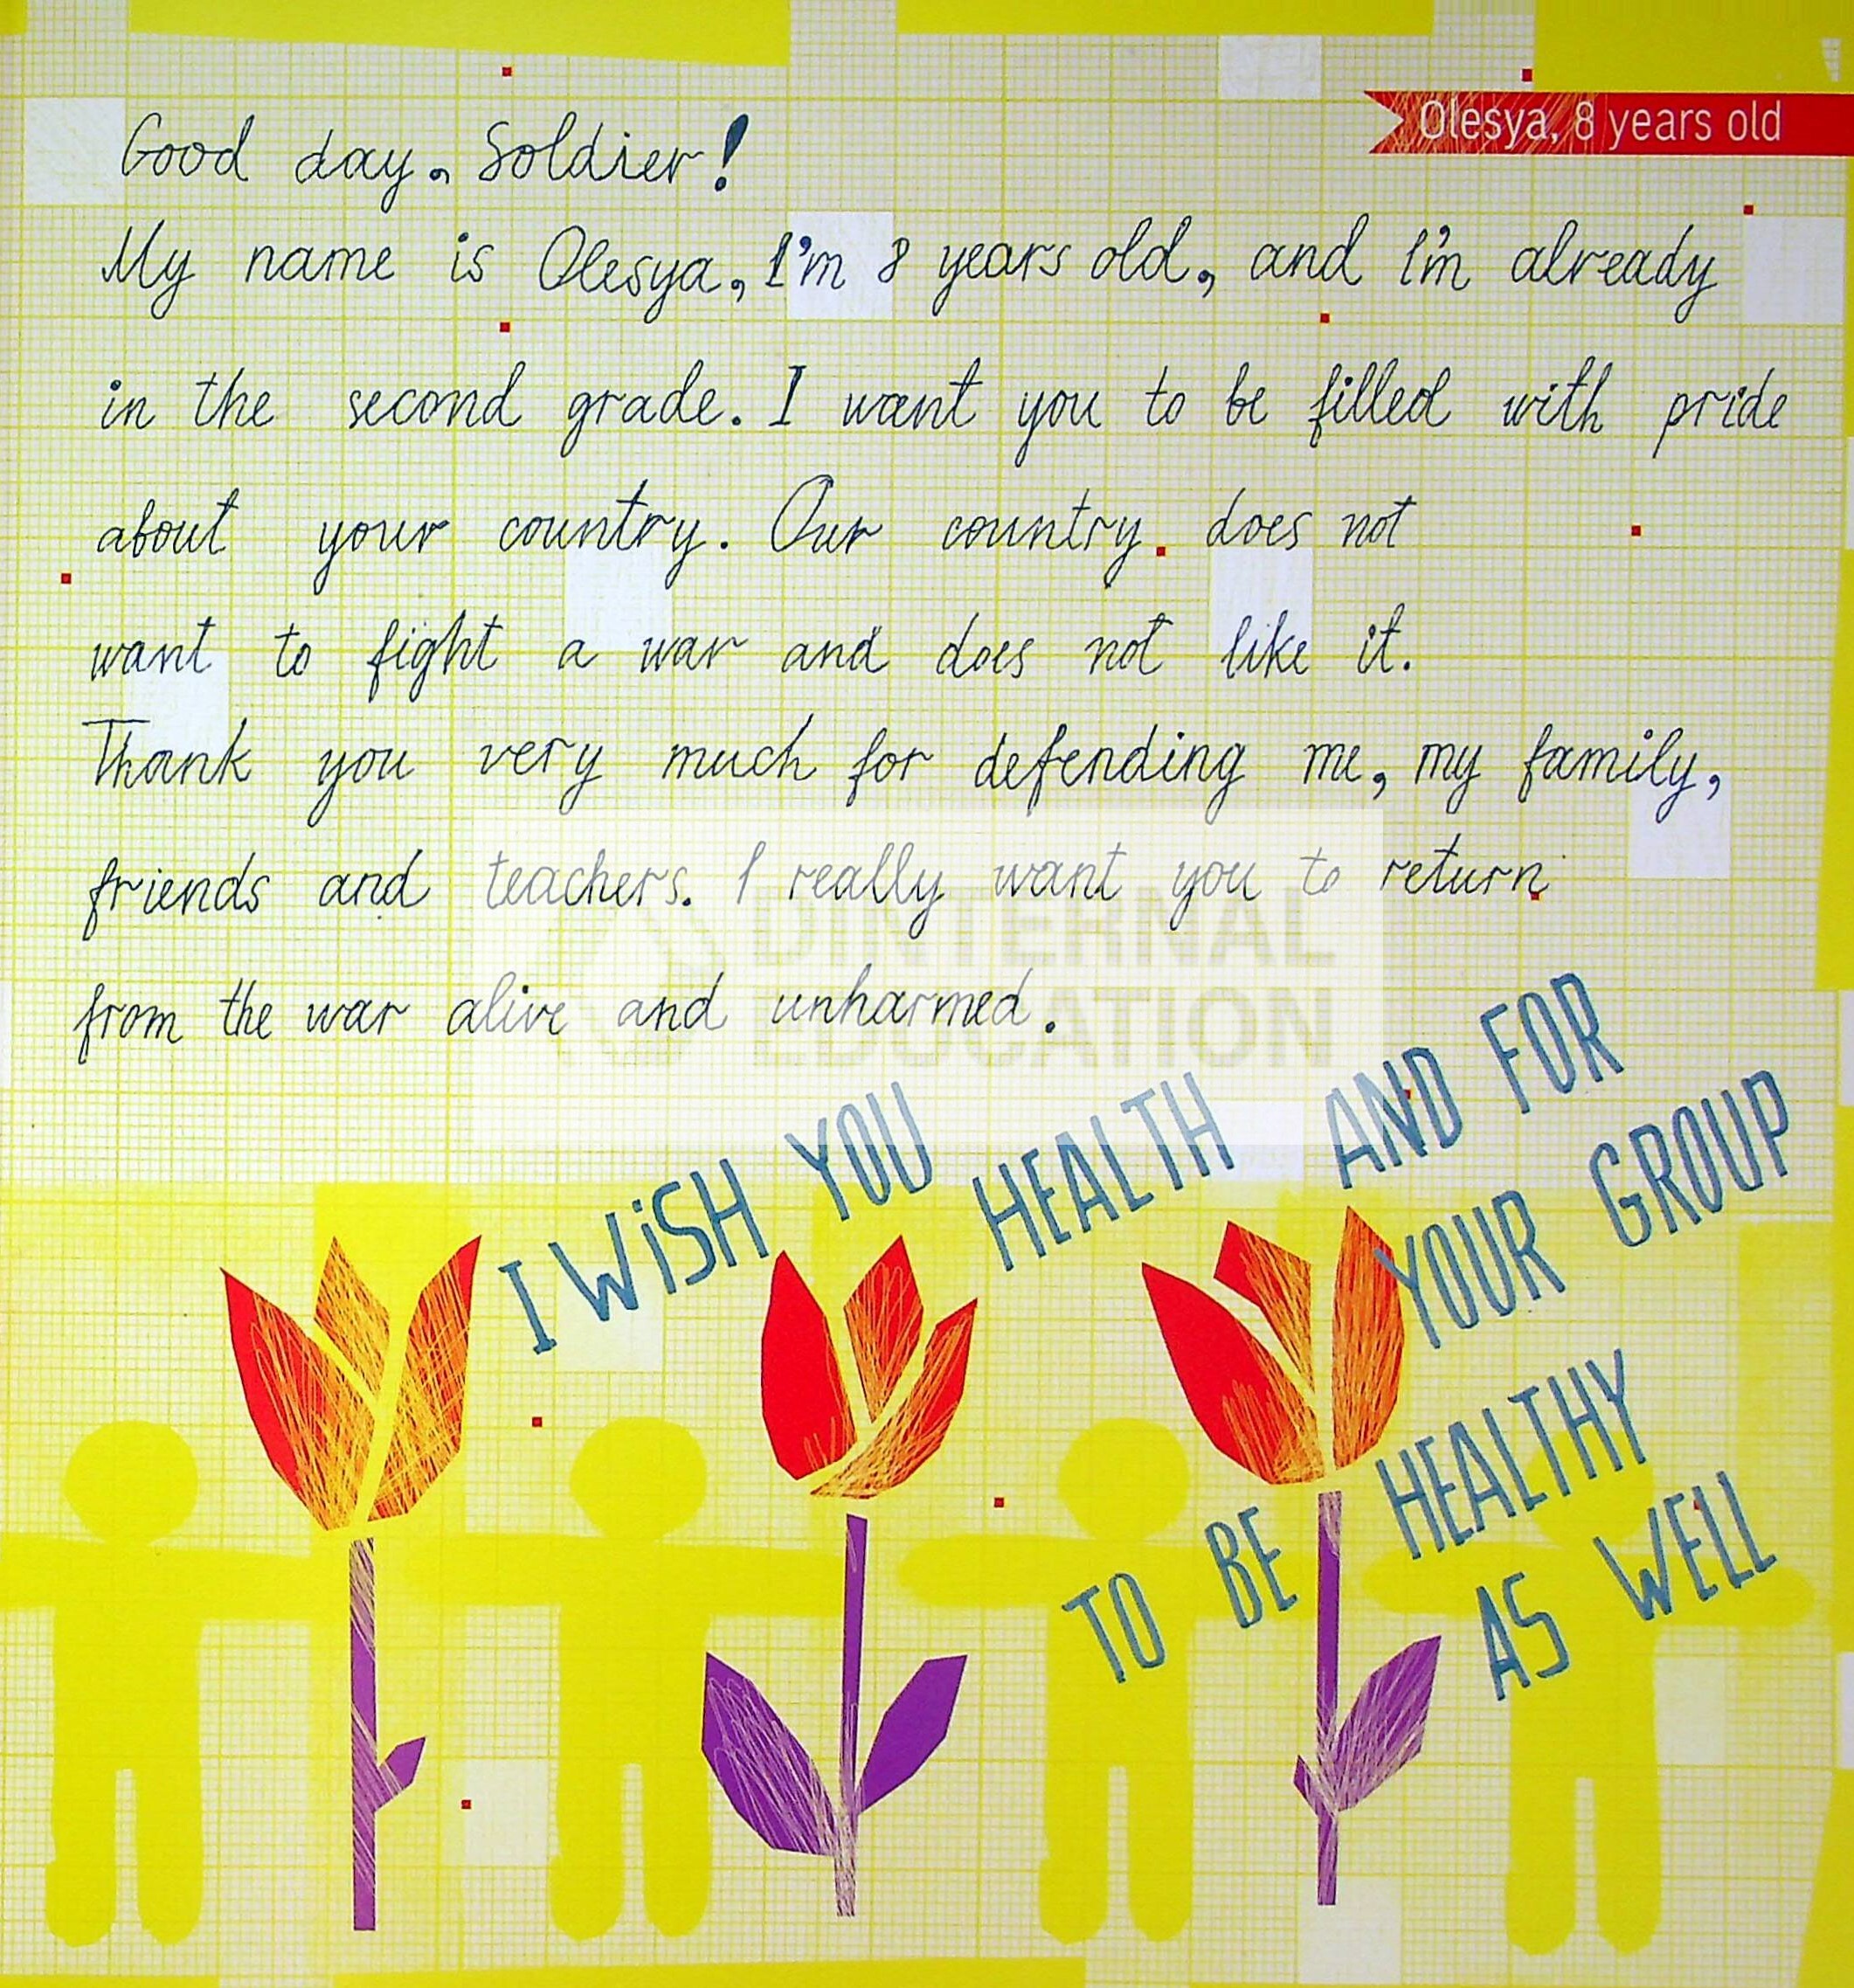 Olesya, 8 years old
Good day, Soldier!
My name is Olesya, I'm 8 years old, and I'm already
in the second grade. I want you to be filled with pride
about your country. Our country does not
want to fight a war and does not like it.
Thank you very much for defending me, my family,
friends and teachers. I really want you to return
from the war alive and unharmed.
DINTERNAL
EDUCATION
I WISH YOU HEALTH AND FOR
YOUR GROUP
TO BE HEALTHY
AS WELL